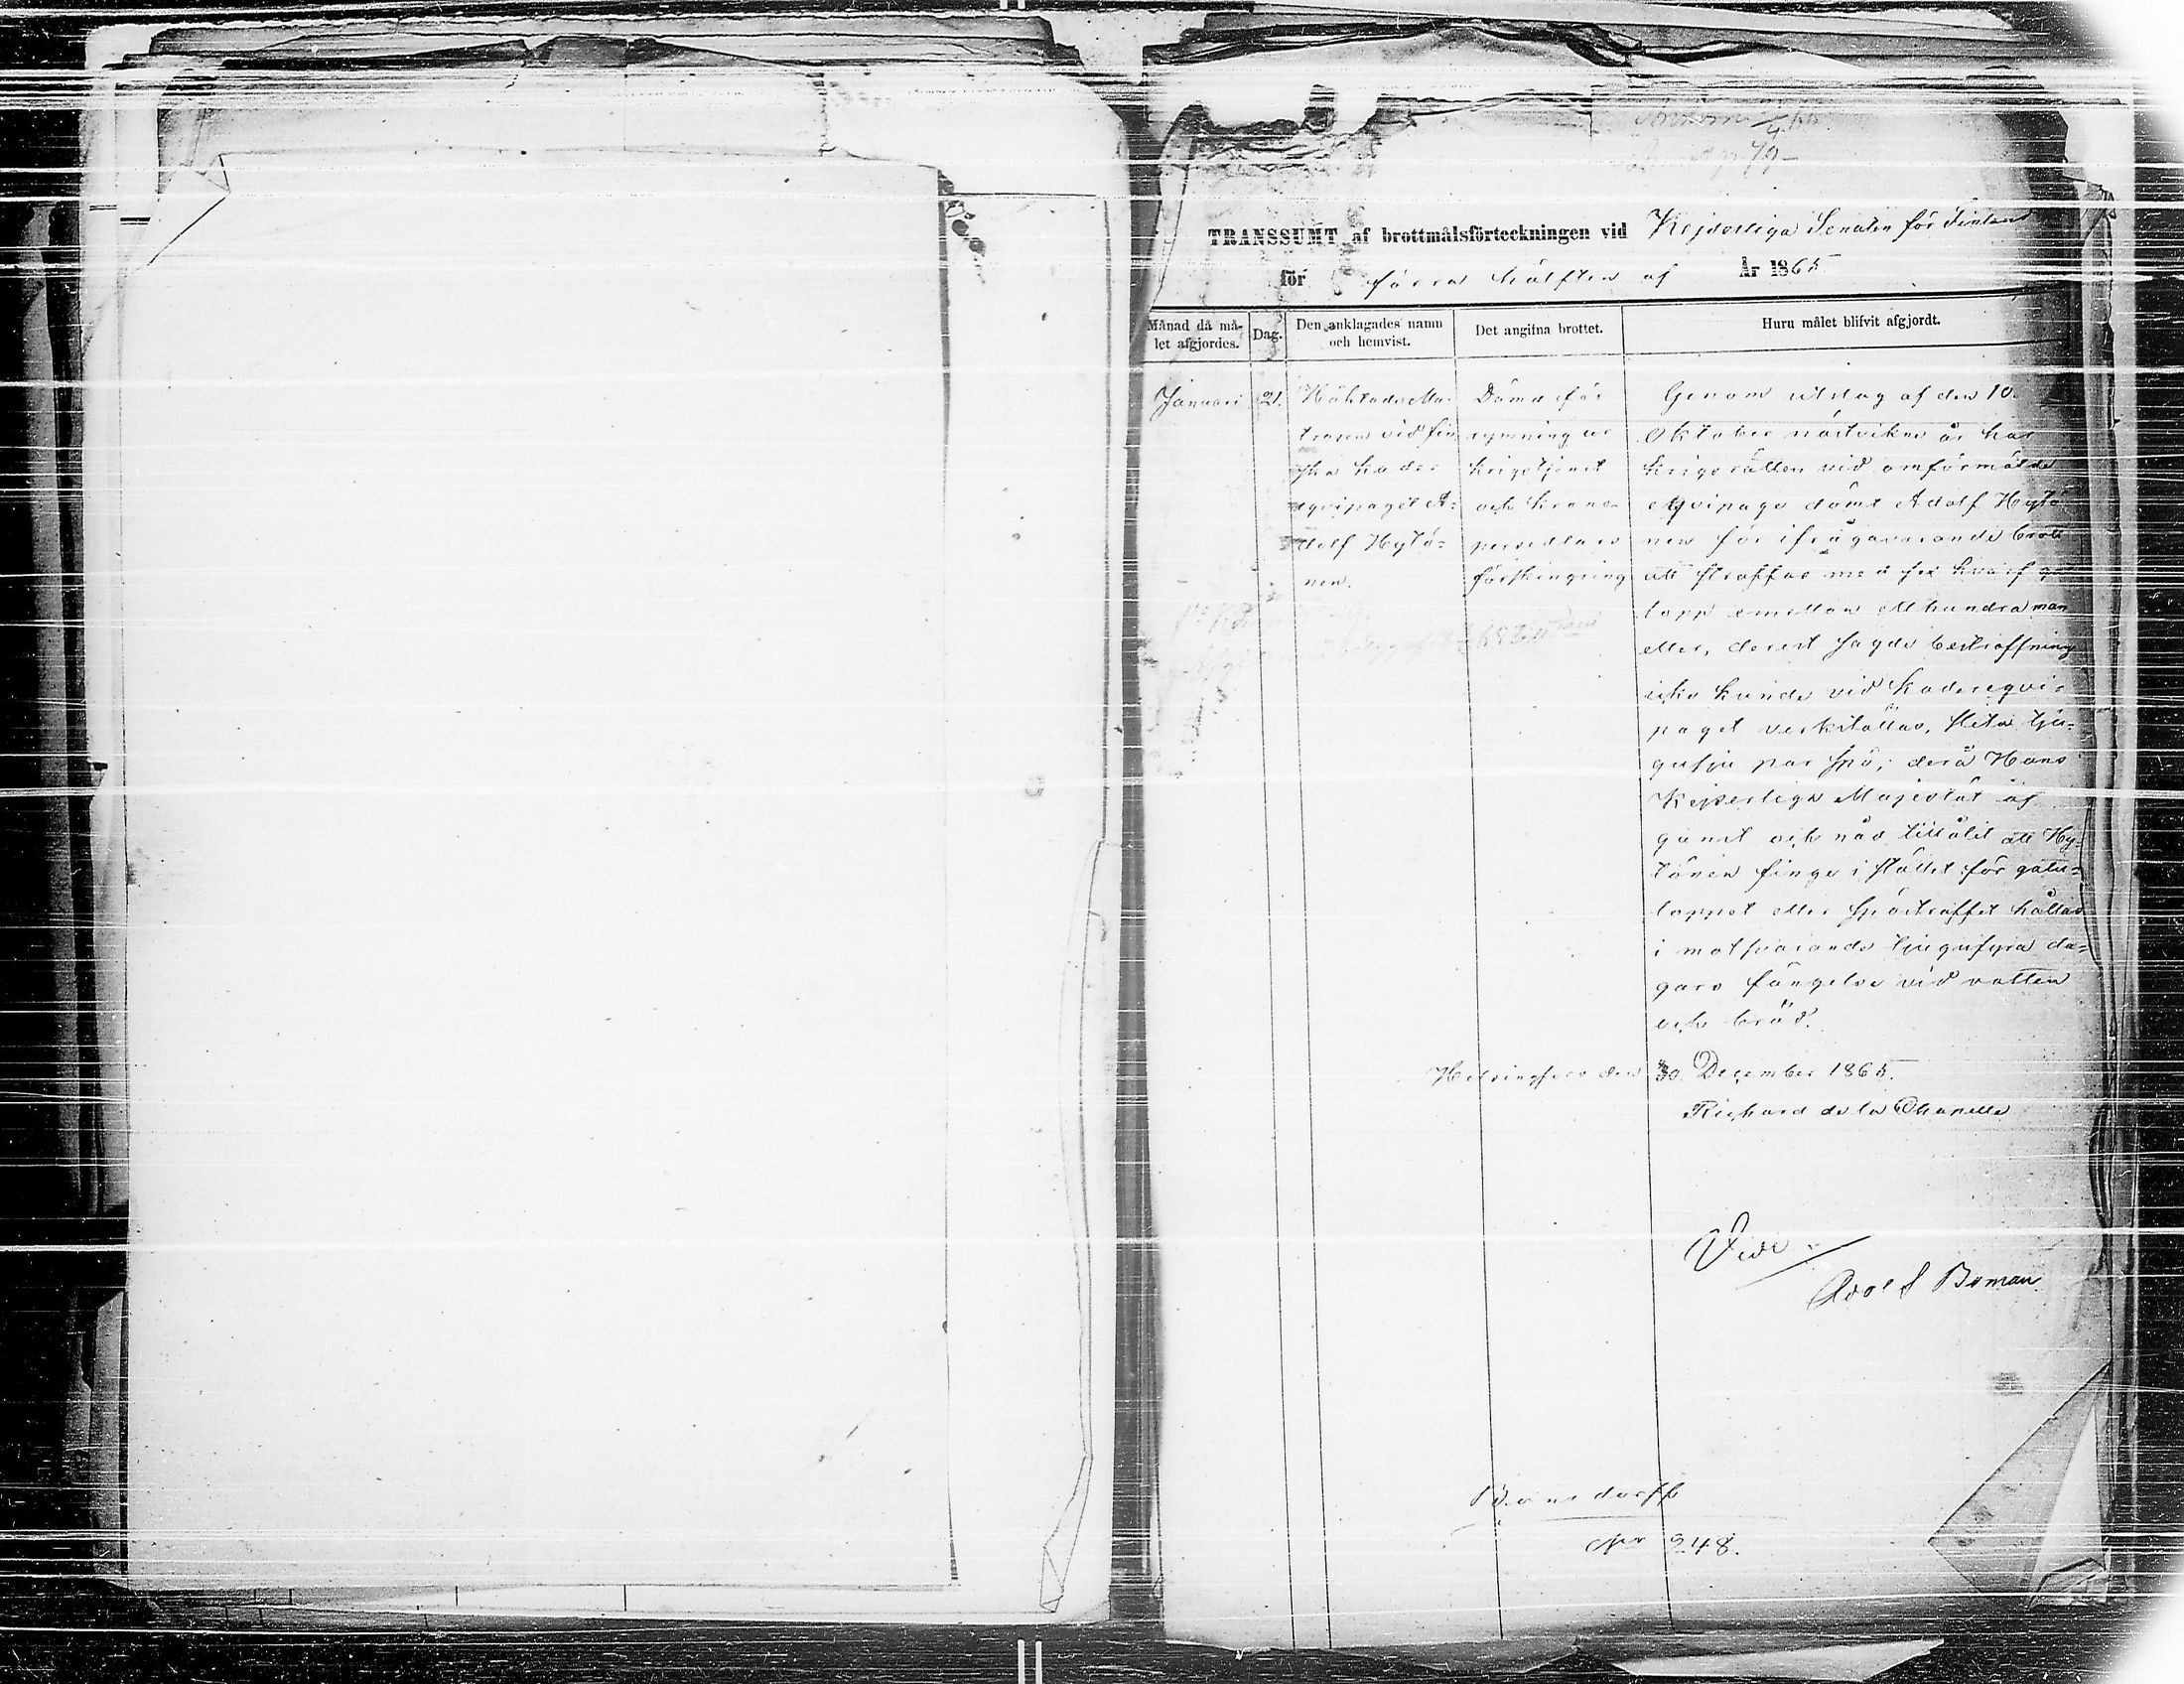 TRANSSUMT af brottmålsförteckningen vid Kejserliga Senaten för Finland
för förra hälften af År 1865
Månad då må-
let afgjordes.
Dag.
Den anklagades namn
och hemvist.
Det angifna brottet.
Huru målet blifvit afgjordt.
Januari
21.
Häktade Ma-
trosen vid fin
ska kader
eqvipaget A-
dolf Hytö-
nen.
Dömd för
rymning ur
krigstjenst
och krono-
persedlars
förskingring
Genom utslag af den 10
Oktober nästvikne år har
krigsrätten vid omförmälde
eqvipage dömt Adolf Hytö
nen för ifrågavarande brott
att straffas med sex hvarf ga
lopp emellan etthundra man
eller, derest sagde bestraffning
icke kunde vid kadereqvi-
paget verkställas, slita tju-
gusju par spö; derå Hans
Kejserliga Majestät af
gunst och nåd tillåtit att Hy-
tönen finge i stället för gatu-
loppet eller spöstraffet hållas
i motsvarande tjugufyra da-
gars fängelse vid vatten
och bröd.
Helsingfors den 30 December 1865.
Richard de la Chapelle
Vidi
Adolf Boman
Bonsdorff
No 248.